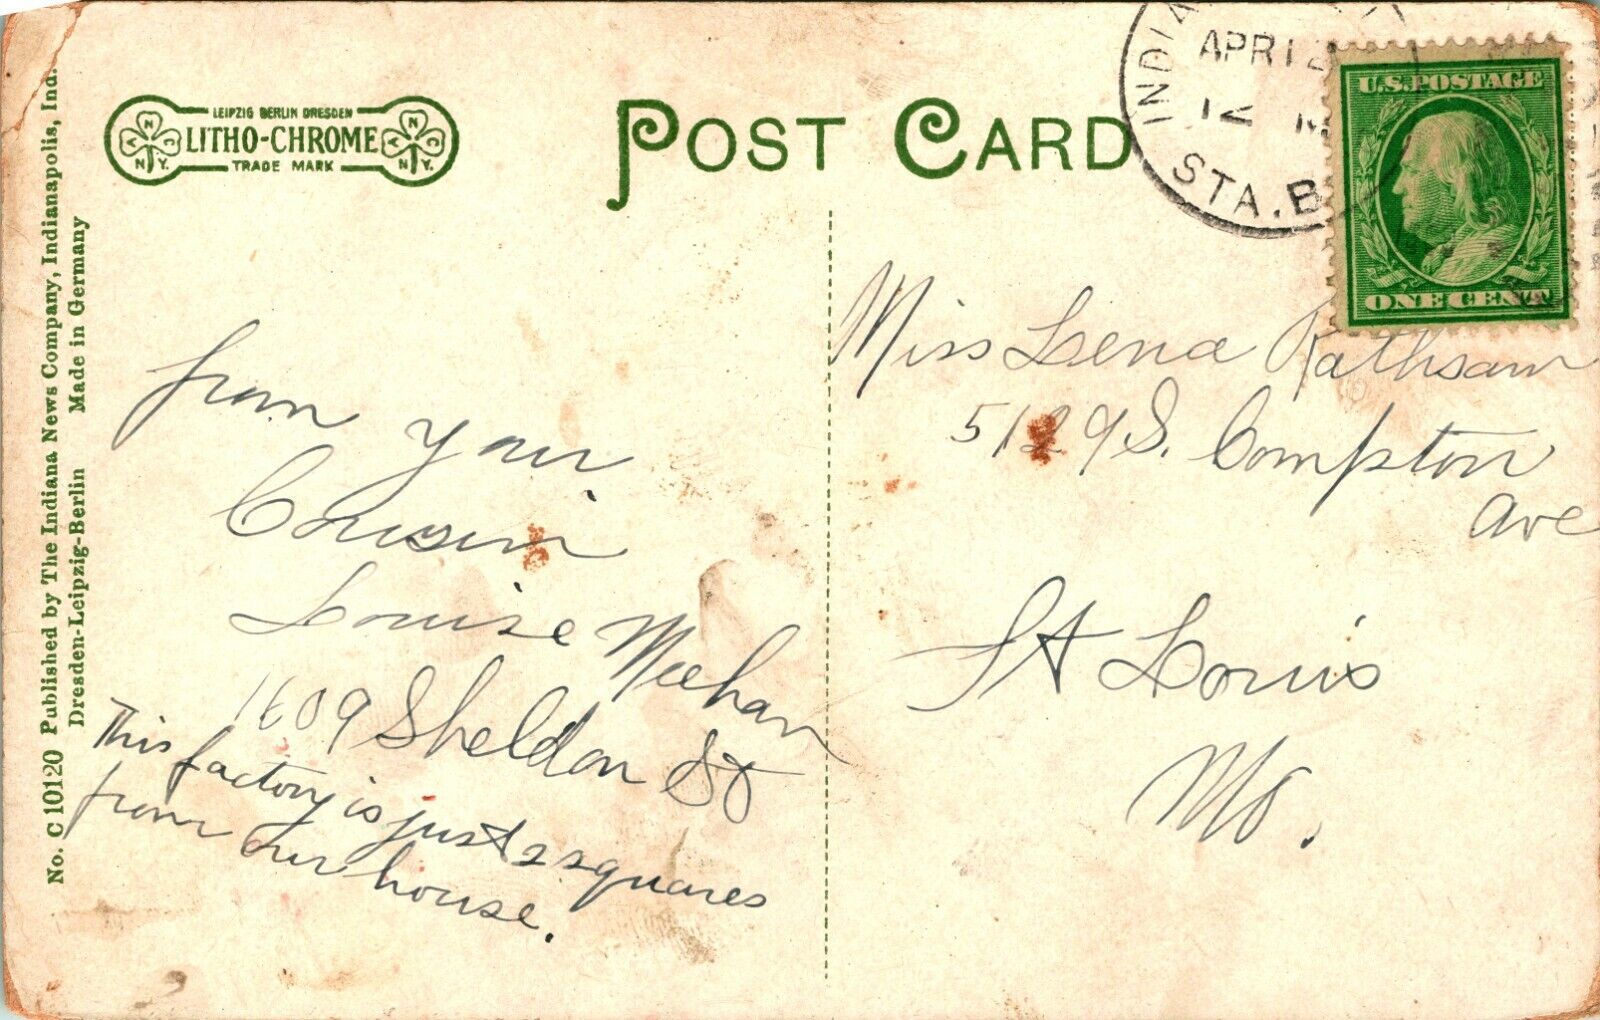 No. C 10120 Published by The Indiana News Company, Indianapolis, Ind.
Dresden-Leipzig-Berlin Made in Germany
LEIPZIG BERLIN DRESDEN
LITHO-CHROME
TRADE MARK
N.Y.
N.Y.
POST CARD
APR 12
12 M
STA. B
U.S. POSTAGE
ONE CENT
from your
Cousin
Louise Meehan
1609 Sheldon St
This
factory is just 2 squares
from our house.
Miss Lena Rathsam
5129 S. Compton
Ave
St Louis
Mo.